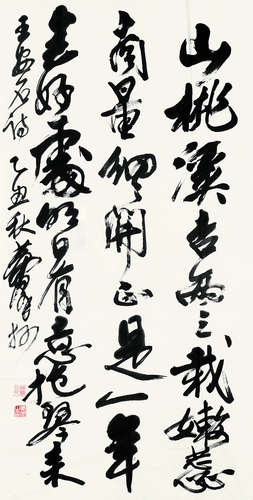 山桃溪杏两三栽嫩蕊
商量细开正是一年
春好處明日有意抱琴来
王安石诗 乙丑秋